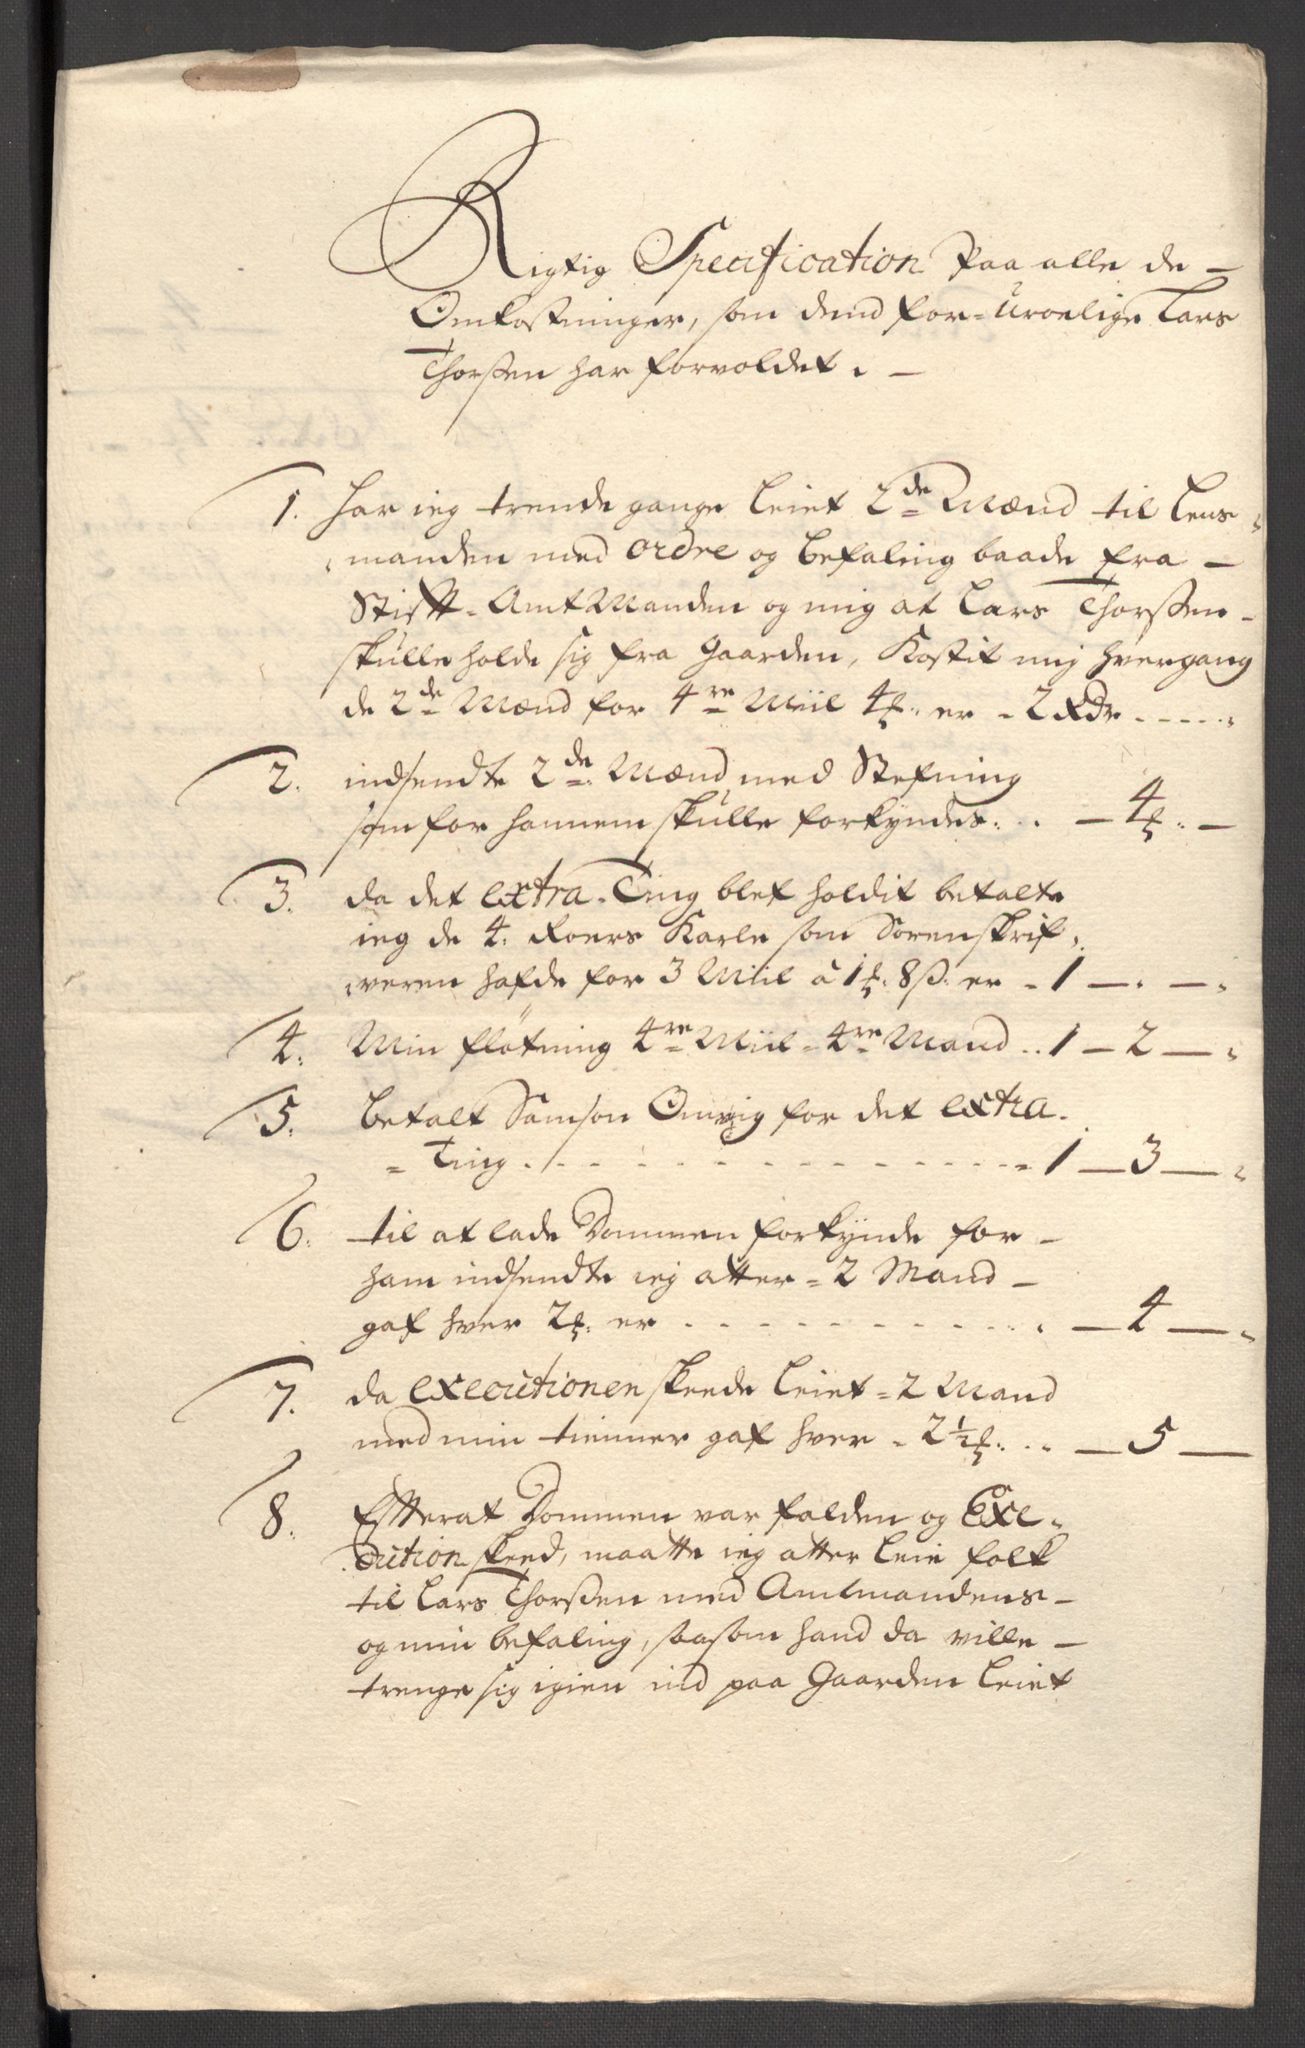 Rigtig Specification Paa alle de –
Omkostninger, som dend for-uroelige Lars
Thorssen har forvoldet. –
1. har ieg trende gange leiet 2de Mænd til Lens-
manden med ordre og befaling baade fra –
Stift-AmtManden og mig at Lars Thorssen –
skulle holde sig fra Gaarden, Kostit mig hvergang
de 2de Mænd for 4re Miil 4ß. er - 2 Rdr - - - - -
2. indsendte 2de Mænd med Stefning
som for hannem skulle forkyndes. . . – 4ß. –
3. da det extra-Ting blef holdit betalte
ieg de 4. Roers Karle som Sorenskrif-
veren hafde for 3 Miil à 1ß. 8ß. er - 1 – . – .
4. Min fløtning 4re Miil - 4re Mand . . 1 – 2 – .
5. betalt Samson Omvig for det extra-
- Ting . - - - - - - - - - - - - 1 – 3 – .
6. til at lade Dommen forkynde for –
ham indsendte ieg atter - 2 Mand –
gaf hver 2ß. er . - - - - - - - - - . – 4 – .
7. da executionen skeede leiet - 2 Mand
med min tienner gaf hver - 2½ß. . . – 5 –
8. Efterat Dommen var falden og Exe-
cution skeed, maatte ieg atter leie folk
til Lars Thorssen med Amtmandens –
og min befaling, saasom hand da ville –
trenge sig igien ind paa Gaarden leiet